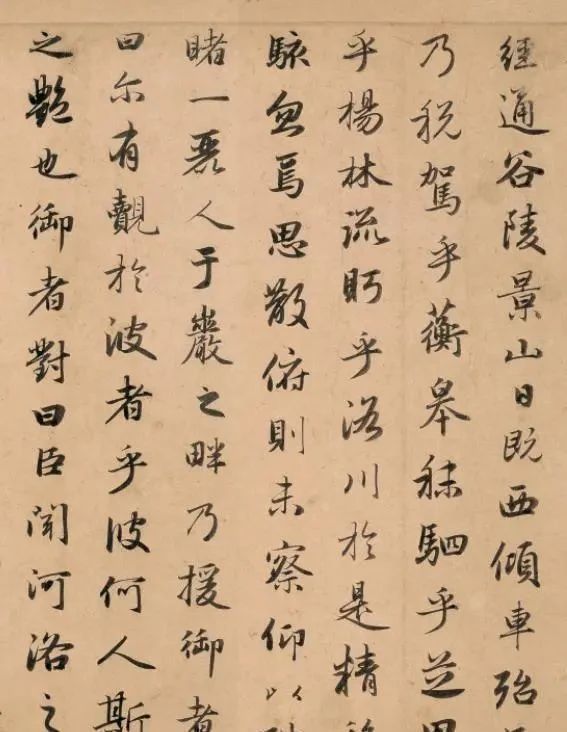 經通谷陵景山日既西傾車殆
乃税駕乎蘅皋秣駟乎芝田
乎楊林流眄乎洛川於是精移
駭忽焉思散俯則未察仰以
睹一麗人于巖之畔乃援御者
曰尓有覿於彼者乎彼何人斯
之艷也御者對曰臣聞河洛之